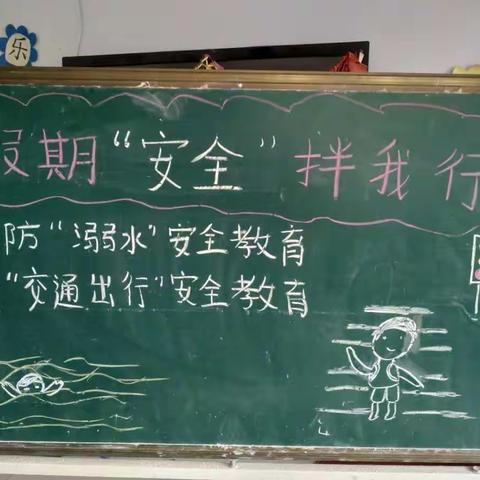 乐
假期“安全”拌我行
防“溺水”安全教育
“交通出行”安全教育